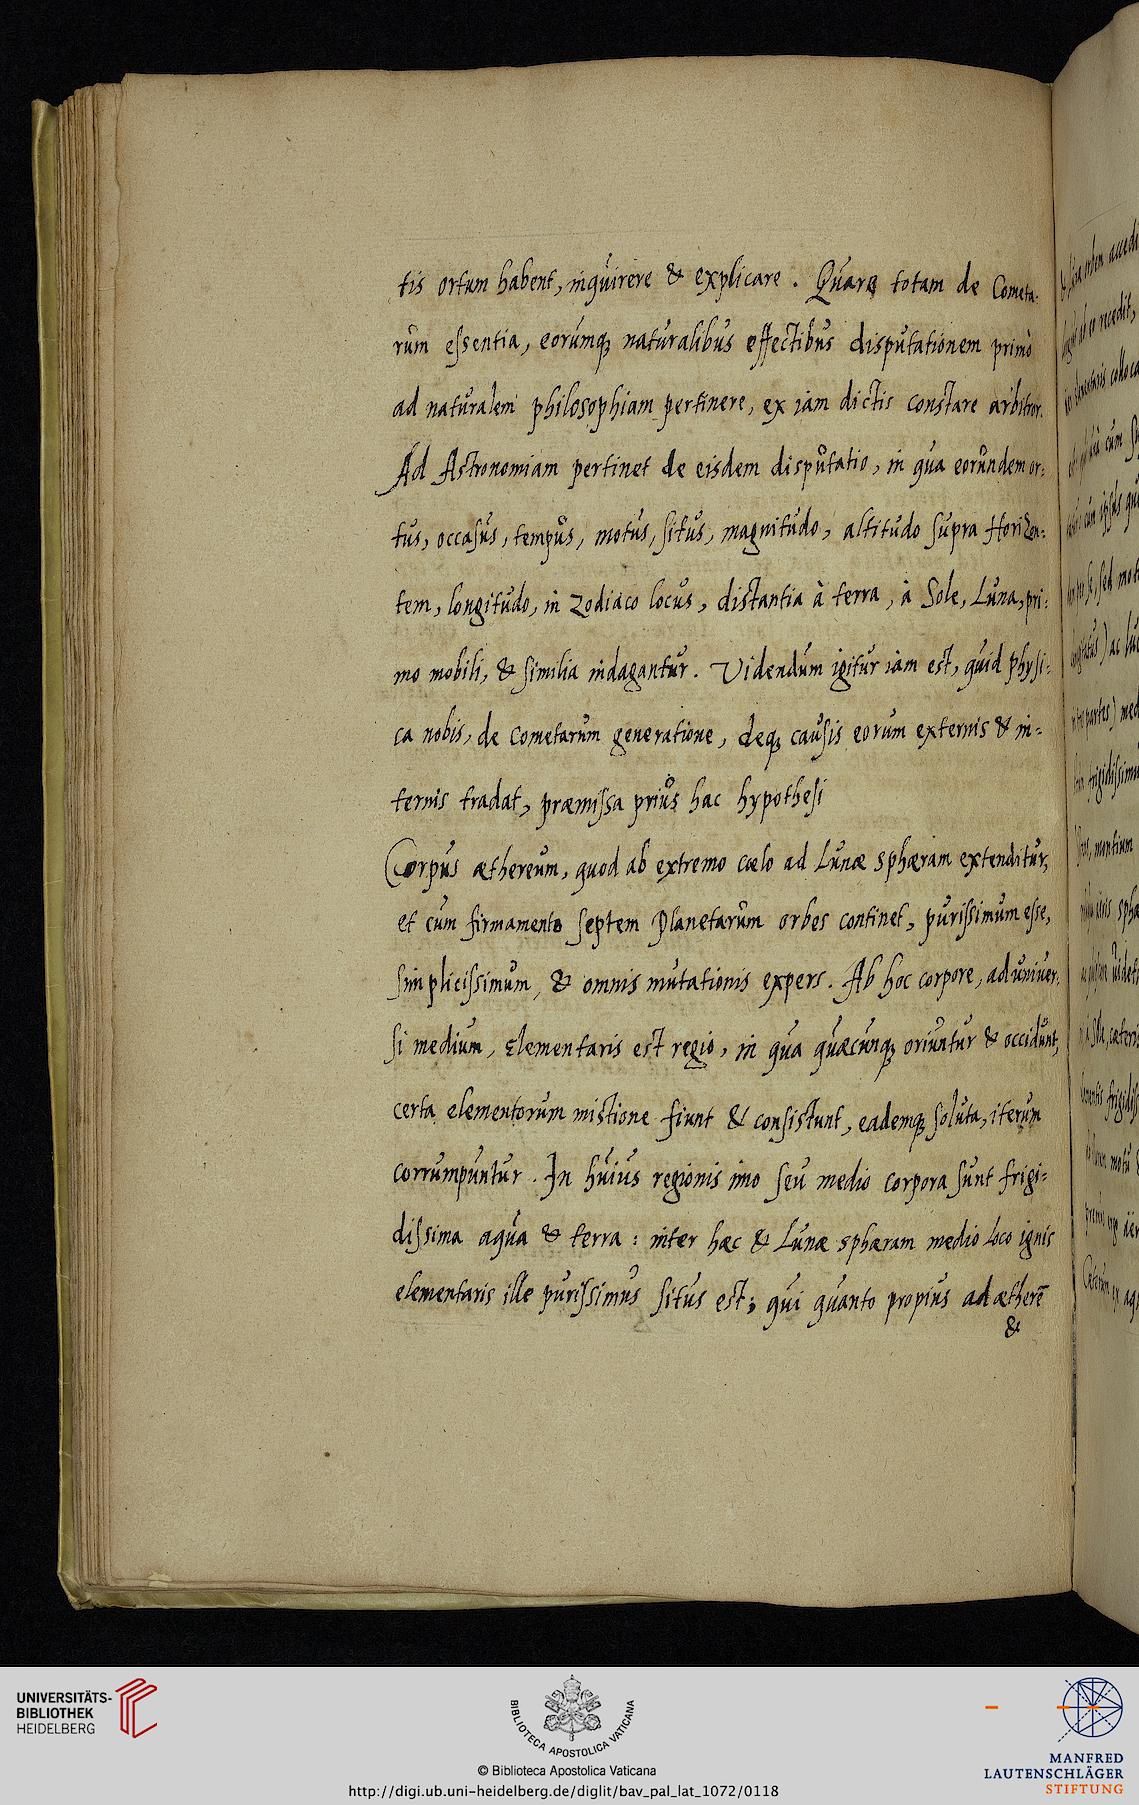 tis ortum habent, inquirere & explicare. Quare totam de Cometa-
rum essentia, eorumq; naturalibus effectibus disputationem primò
ad naturalem philosophiam pertinere, ex iam dictis constare arbitror.
Ad Astronomiam pertinet de eisdem disputatio, in qua eorundem or-
tus, occasus, tempus, motus, situs, magnitudo, altitudo supra Horizon-
tem, longitudo, in Zodiaco locus, distantia à terra, à Sole, Luna, pri-
mo mobili, & similia indagantur. Videndum igitur iam est, quid physi-
ca nobis, de cometarum generatione, deq; causis eorum externis & in-
ternis tradat, præmissa prius hac hypothesi
Corpus æthereum, quod ab extremo cœlo ad Lunæ sphæram extenditur,
et cum firmamento septem Planetarum orbes continet, purissimum esse,
simplicissimum, & omnis mutationis expers. Ab hoc corpore, ad univer-
si medium, Elementaris est regio, in qua quæcunq; oriuntur & occidunt,
certa elementorum mistione fiunt & consistunt, eademq; soluta, iterum
corrumpuntur. In huius regionis imo seu medio corpora sunt frigi-
dissima aqua & terra: inter hæc & Lunæ sphæram medio loco ignis
elementaris ille purissimus situs est; qui quanto propius ad ætherē
&
UNIVERSITÄTS-
BIBLIOTHEK
HEIDELBERG
BIBLIOTECA APOSTOLICA VATICANA
© Biblioteca Apostolica Vaticana
http://digi.ub.uni-heidelberg.de/diglit/bav_pal_lat_1072/0118
MANFRED
LAUTENSCHLÄGER
STIFTUNG